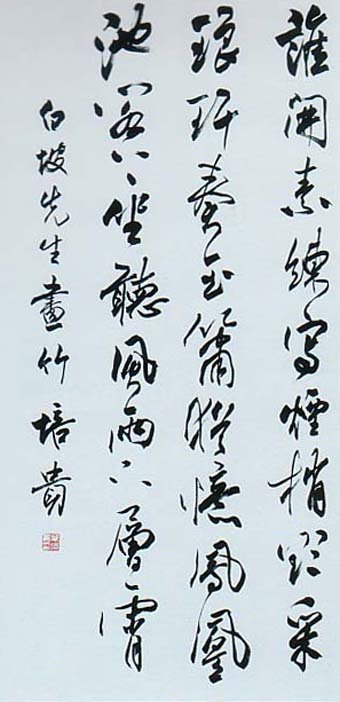 誰開素練寫煙梢采
琅玕奏玉簫猶憶鳳凰
池閣上坐聽風雨下層霄
白坡先生畫竹 培貴